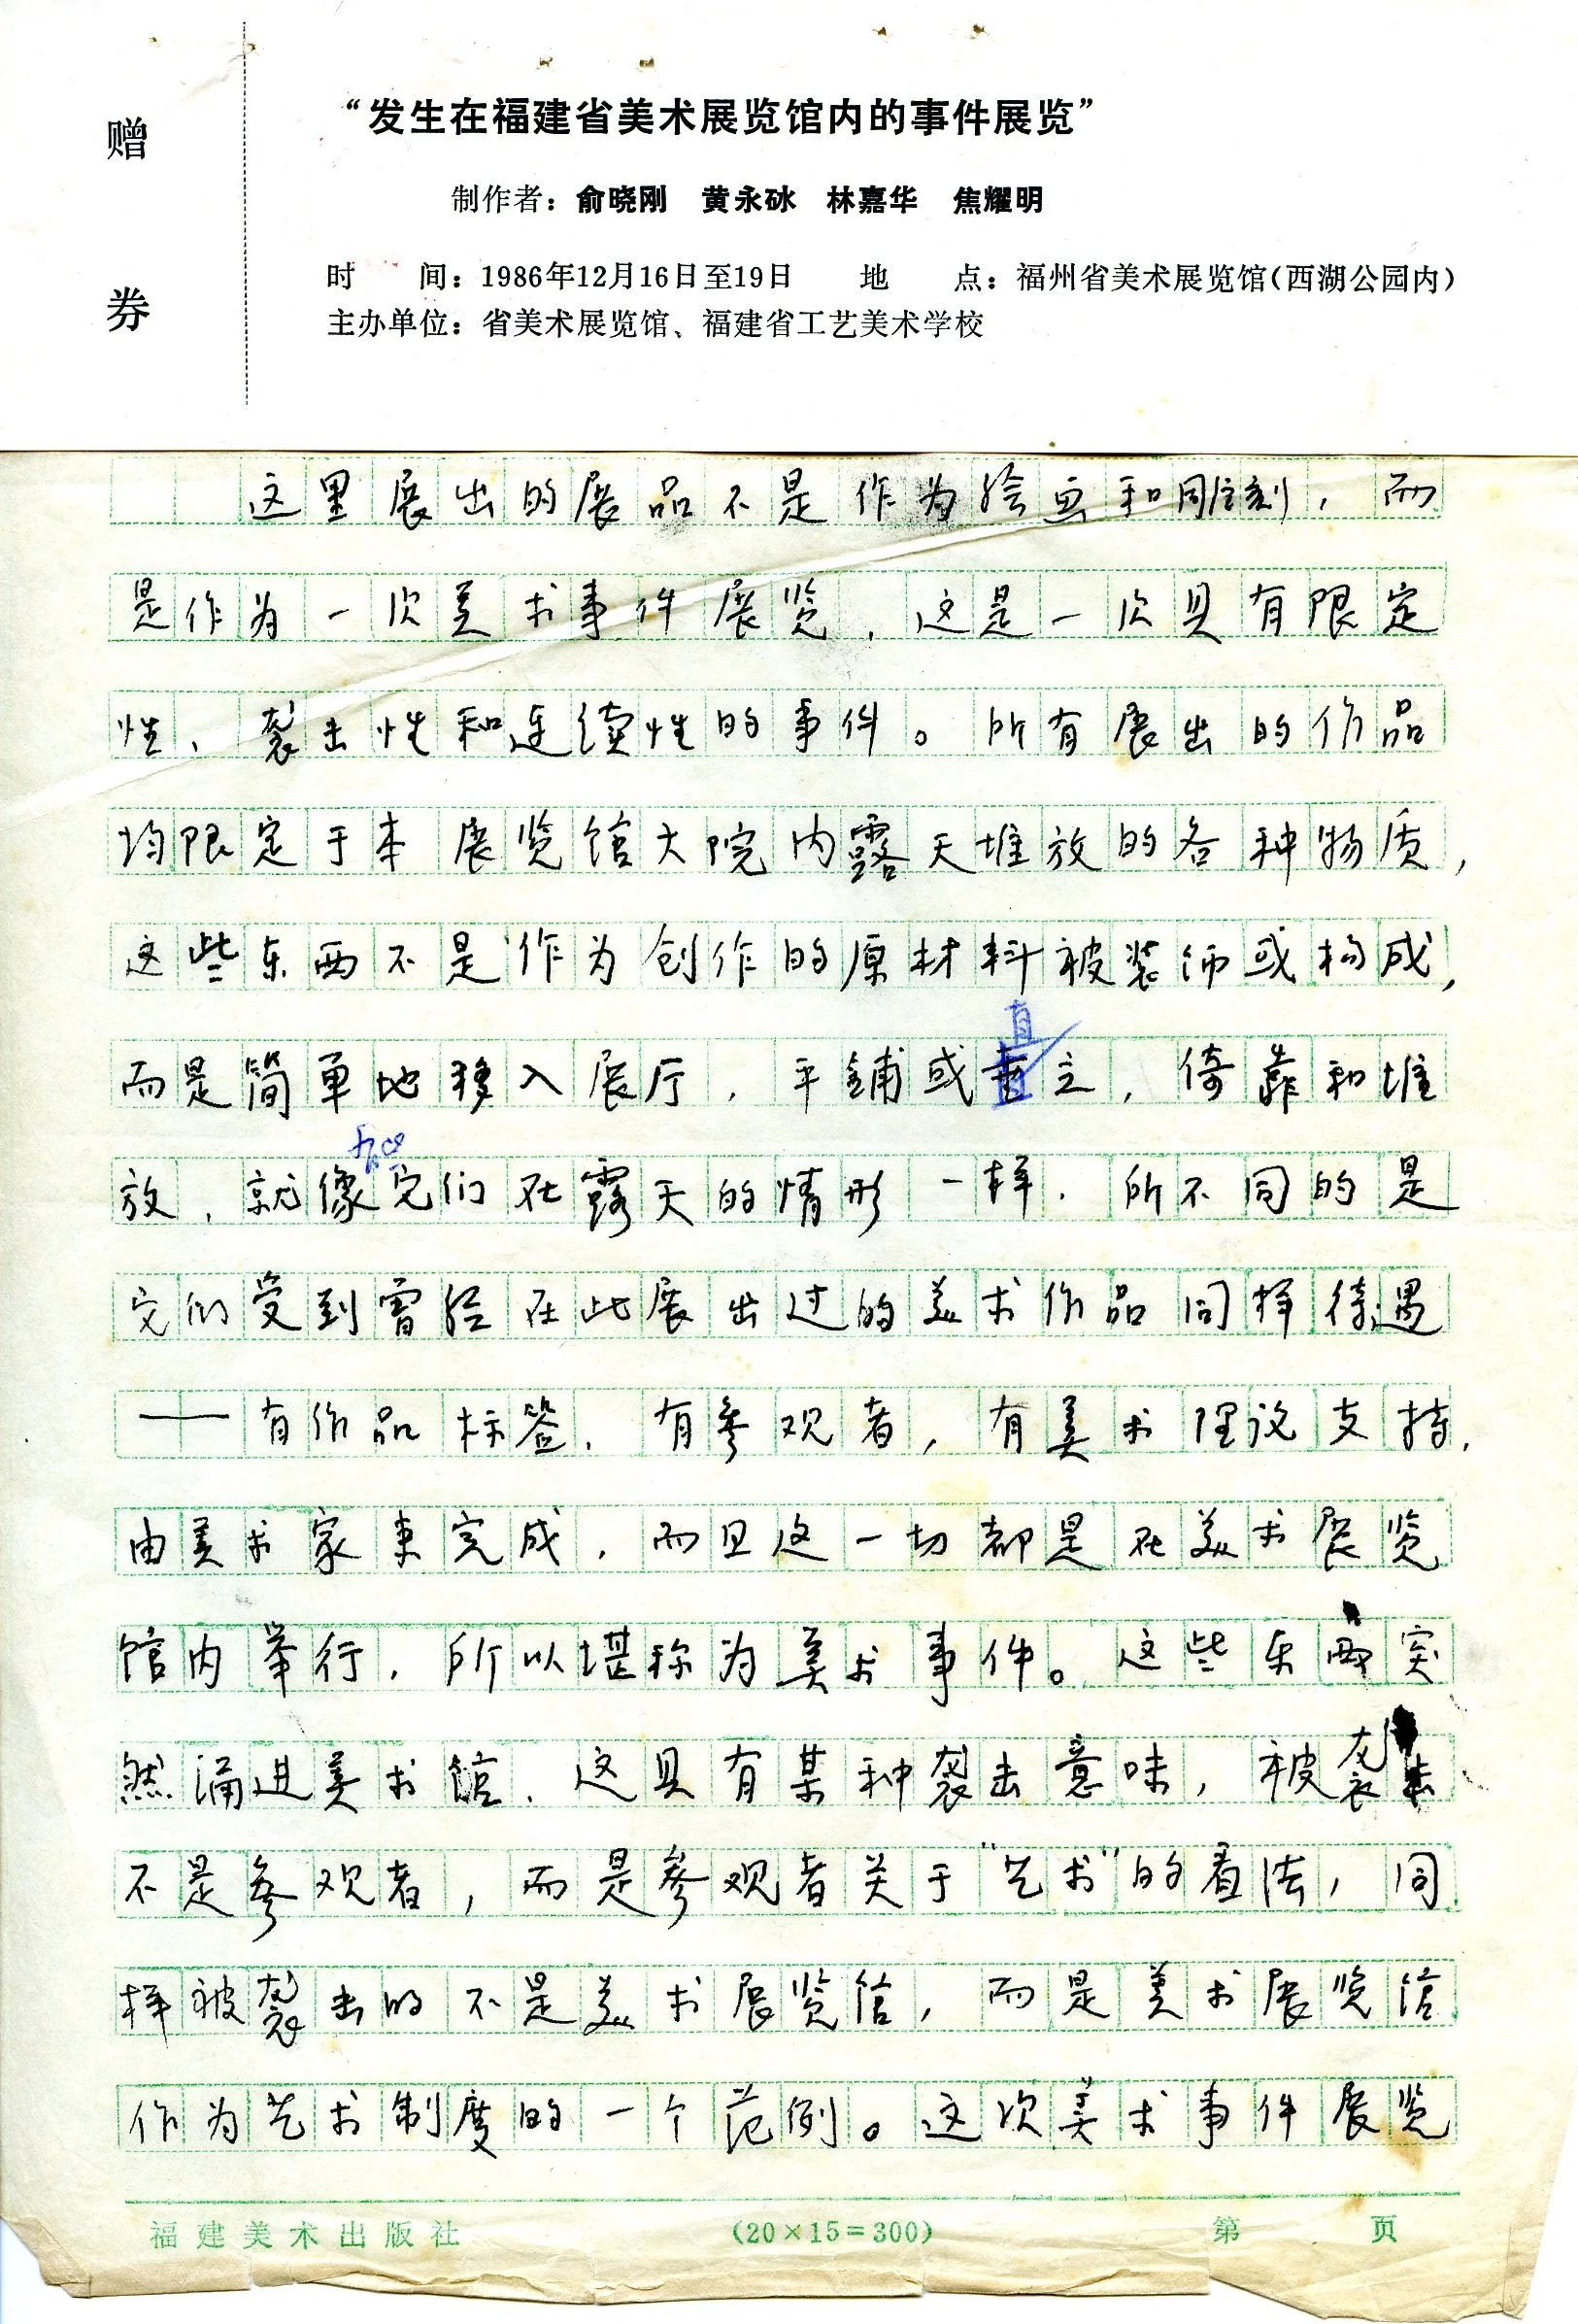 赠券
“发生在福建省美术展览馆内的事件展览”
制作者：俞晓刚 黄永砯 林嘉华 焦耀明
时 间：1986年12月16日至19日 地 点：福州省美术展览馆（西湖公园内）
主办单位：省美术展览馆、福建省工艺美术学校
这里展出的展品不是作为绘画和雕刻，而
是作为一次美术事件展览，这是一次具有限定
性、袭击性和连续性的事件。所有展出的作品
均限定于本展览馆大院内露天堆放的各种物质，
这些东西不是作为创作的原材料被装饰或构成，
而是简单地移入展厅，平铺或直立，倚靠和堆
放，就像它们在露天的情形一样，所不同的是
它们受到曾经在此展出过的美术作品同样待遇
——有作品标签，有参观者，有美术理论支持，
由美术家来完成，而且这一切都是在美术展览
馆内举行，所以堪称为美术事件。这些东西突
然涌进美术馆，这具有某种袭击意味，被袭击
不是参观者，而是参观者关于“艺术”的看法，同
样被袭击的不是美术展览馆，而是美术展览馆
作为艺术制度的一个范例。这次美术事件展览
福建美术出版社 (20×15=300) 第 页